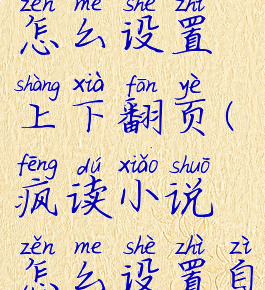 zěn me shè zhì
怎么设置
shàng xià fān yè
上下翻页(
fēng dú xiǎo shuō
疯读小说
zěn me shè zhì zì
怎么设置自